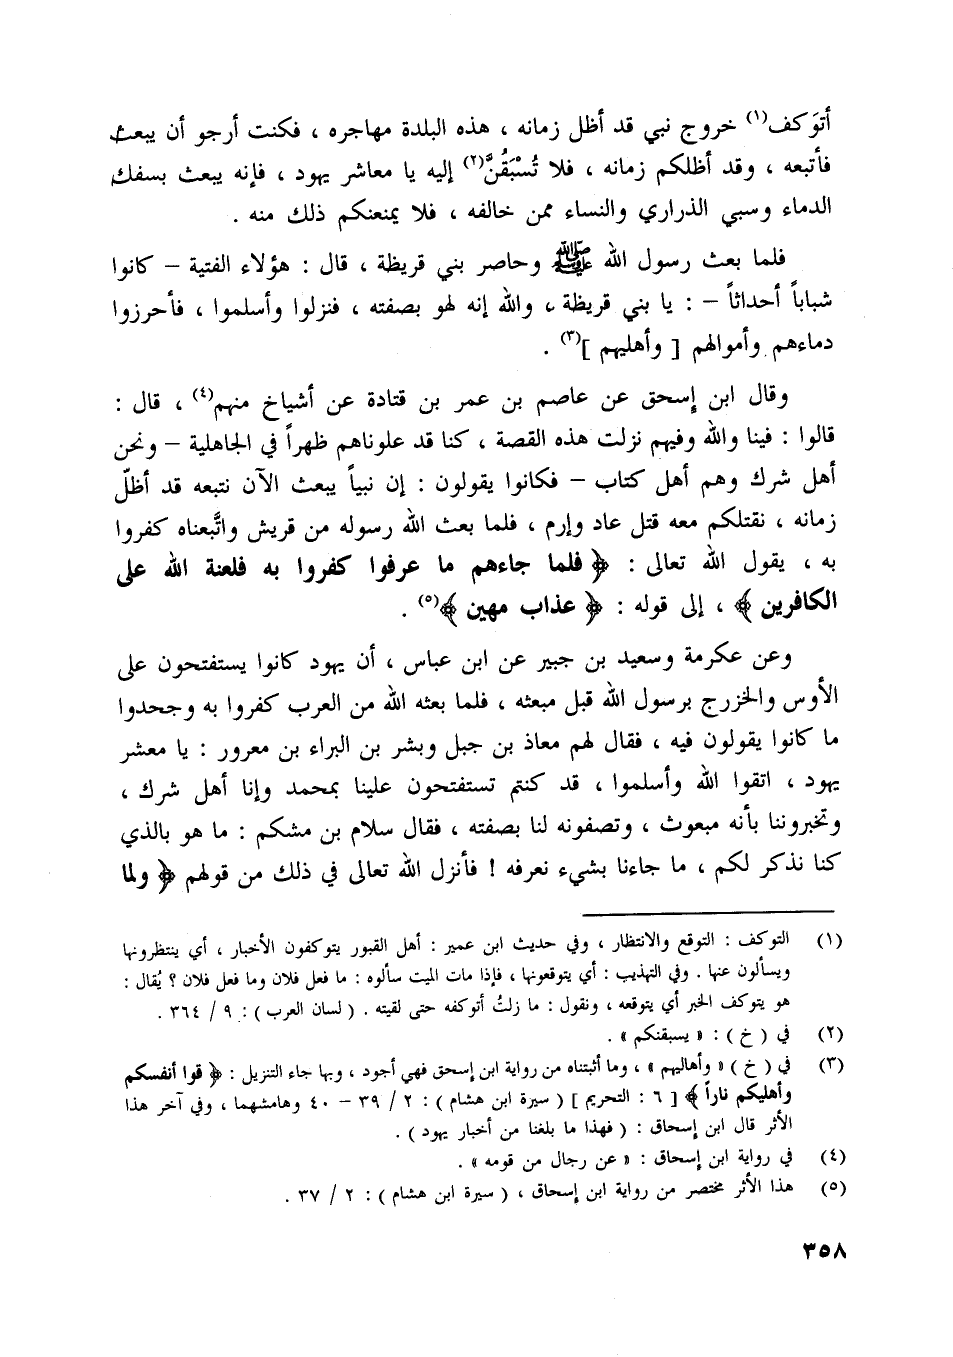 أتوَكف(١) خروج نبي قد أظل زمانه ، هذه البلدة مهاجره ، فكنت أرجو أن يبعث
فأتبعه ، وقد أظلكم زمانه ، فلا تُسْبَقُنَّ(٢) إليه يا معاشر يهود ، فإنه يبعث بسفك
الدماء وسبي الذراري والنساء ممن خالفه ، فلا يمنعنكم ذلك منه .
فلما بعث رسول الله ﷺ وحاصر بني قريظة ، قال : هؤلاء الفتية – كانوا
شباباً أحداثاً – : يا بني قريظة ، والله إنه لهو بصفته ، فنزلوا وأسلموا ، فأحرزوا
دماءهم وأموالهم [ وأهليهم ](٣) .
وقال ابن إسحق عن عاصم بن عمر بن قتادة عن أشياخ منهم(٤) ، قال :
قالوا : فينا والله وفيهم نزلت هذه القصة ، كنا قد علوناهم ظهراً في الجاهلية – ونحن
أهل شرك وهم أهل كتاب – فكانوا يقولون : إن نبياً يبعث الآن نتبعه قد أظلّ
زمانه ، نقتلكم معه قتل عاد وإرم ، فلما بعث الله رسوله من قريش واتَّبعناه كفروا
به ، يقول الله تعالى : ﴿ فلما جاءهم ما عرفوا كفروا به فلعنة الله على
الكافرين ﴾ ، إلى قوله : ﴿ عذاب مهين ﴾(٥) .
وعن عكرمة وسعيد بن جبير عن ابن عباس ، أن يهود كانوا يستفتحون على
الأوس والخزرج برسول الله قبل مبعثه ، فلما بعثه الله من العرب كفروا به وجحدوا
ما كانوا يقولون فيه ، فقال لهم معاذ بن جبل وبشر بن البراء بن معرور : يا معشر
يهود ، اتقوا الله وأسلموا ، قد كنتم تستفتحون علينا بمحمد وإنا أهل شرك ،
وتخبروننا بأنه مبعوث ، وتصفونه لنا بصفته ، فقال سلام بن مشكم : ما هو بالذي
كنا نذكر لكم ، ما جاءنا بشيء نعرفه ! فأنزل الله تعالى في ذلك من قولهم ﴿ ولما
(١) التوكف : التوقع والانتظار ، وفي حديث ابن عمير : أهل القبور يتوكفون الأخبار ، أي ينتظرونها
ويسألون عنها . وفي التهذيب : أي يتوقعونها ، فإذا مات الميت سألوه : ما فعل فلان وما فعل فلان ؟ يُقال :
هو يتوكف الخبر أي يتوقعه ، ونقول : ما زلتُ أتوكفه حتى لقيته . ( لسان العرب ) : ٩ / ٣٦٤ .
(٢) في ( خ ) : « يسبقنكم » .
(٣) في ( خ ) « وأهاليهم » ، وما أثبتناه من رواية ابن إسحق فهي أجود ، وبها جاء التنزيل : ﴿ قوا أنفسكم
وأهليكم ناراً ﴾ [ ٦ : التحريم ] ( سيرة ابن هشام ) : ٢ / ٣٩ – ٤٠ وهامشهما ، وفي آخر هذا
الأثر قال ابن إسحاق : ( فهذا ما بلغنا من أخبار يهود ) .
(٤) في رواية ابن إسحاق : « عن رجال من قومه » .
(٥) هذا الأثر مختصر من رواية ابن إسحاق ، ( سيرة ابن هشام ) : ٢ / ٣٧ .
٣٥٨